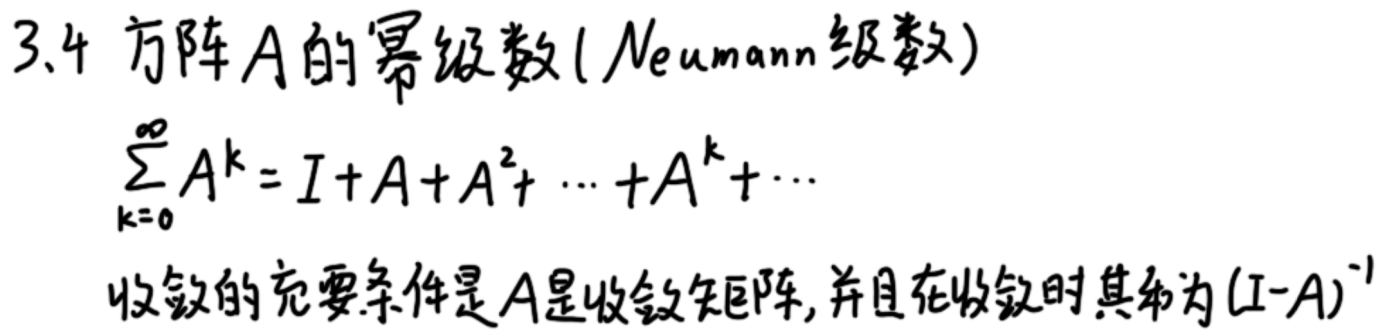 3.4 方阵A的幂级数(Neumann级数)
∑_{k=0}^{∞} A^k = I + A + A^2 + ⋯ + A^k + ⋯
收敛的充要条件是A是收敛矩阵,并且在收敛时其和为(I-A)^{-1}